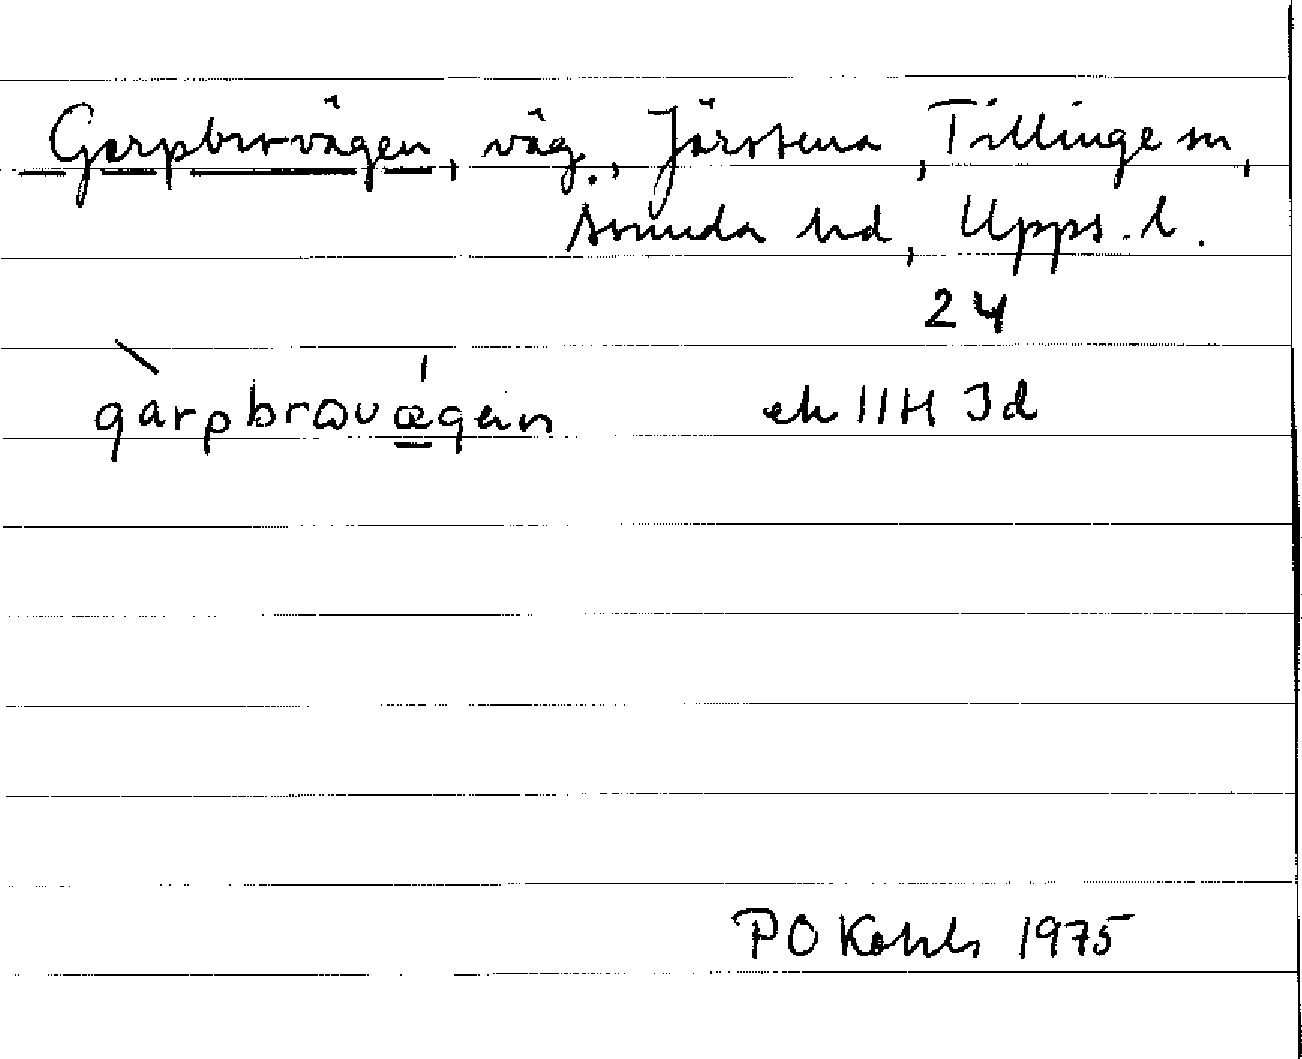 Garpbrovägen, väg, Järstena, Tillinge sn,
Åsunda hd, Upps. l.
24
gàrpbrωvǽgen ek 11H 3d
P O Kohls 1975